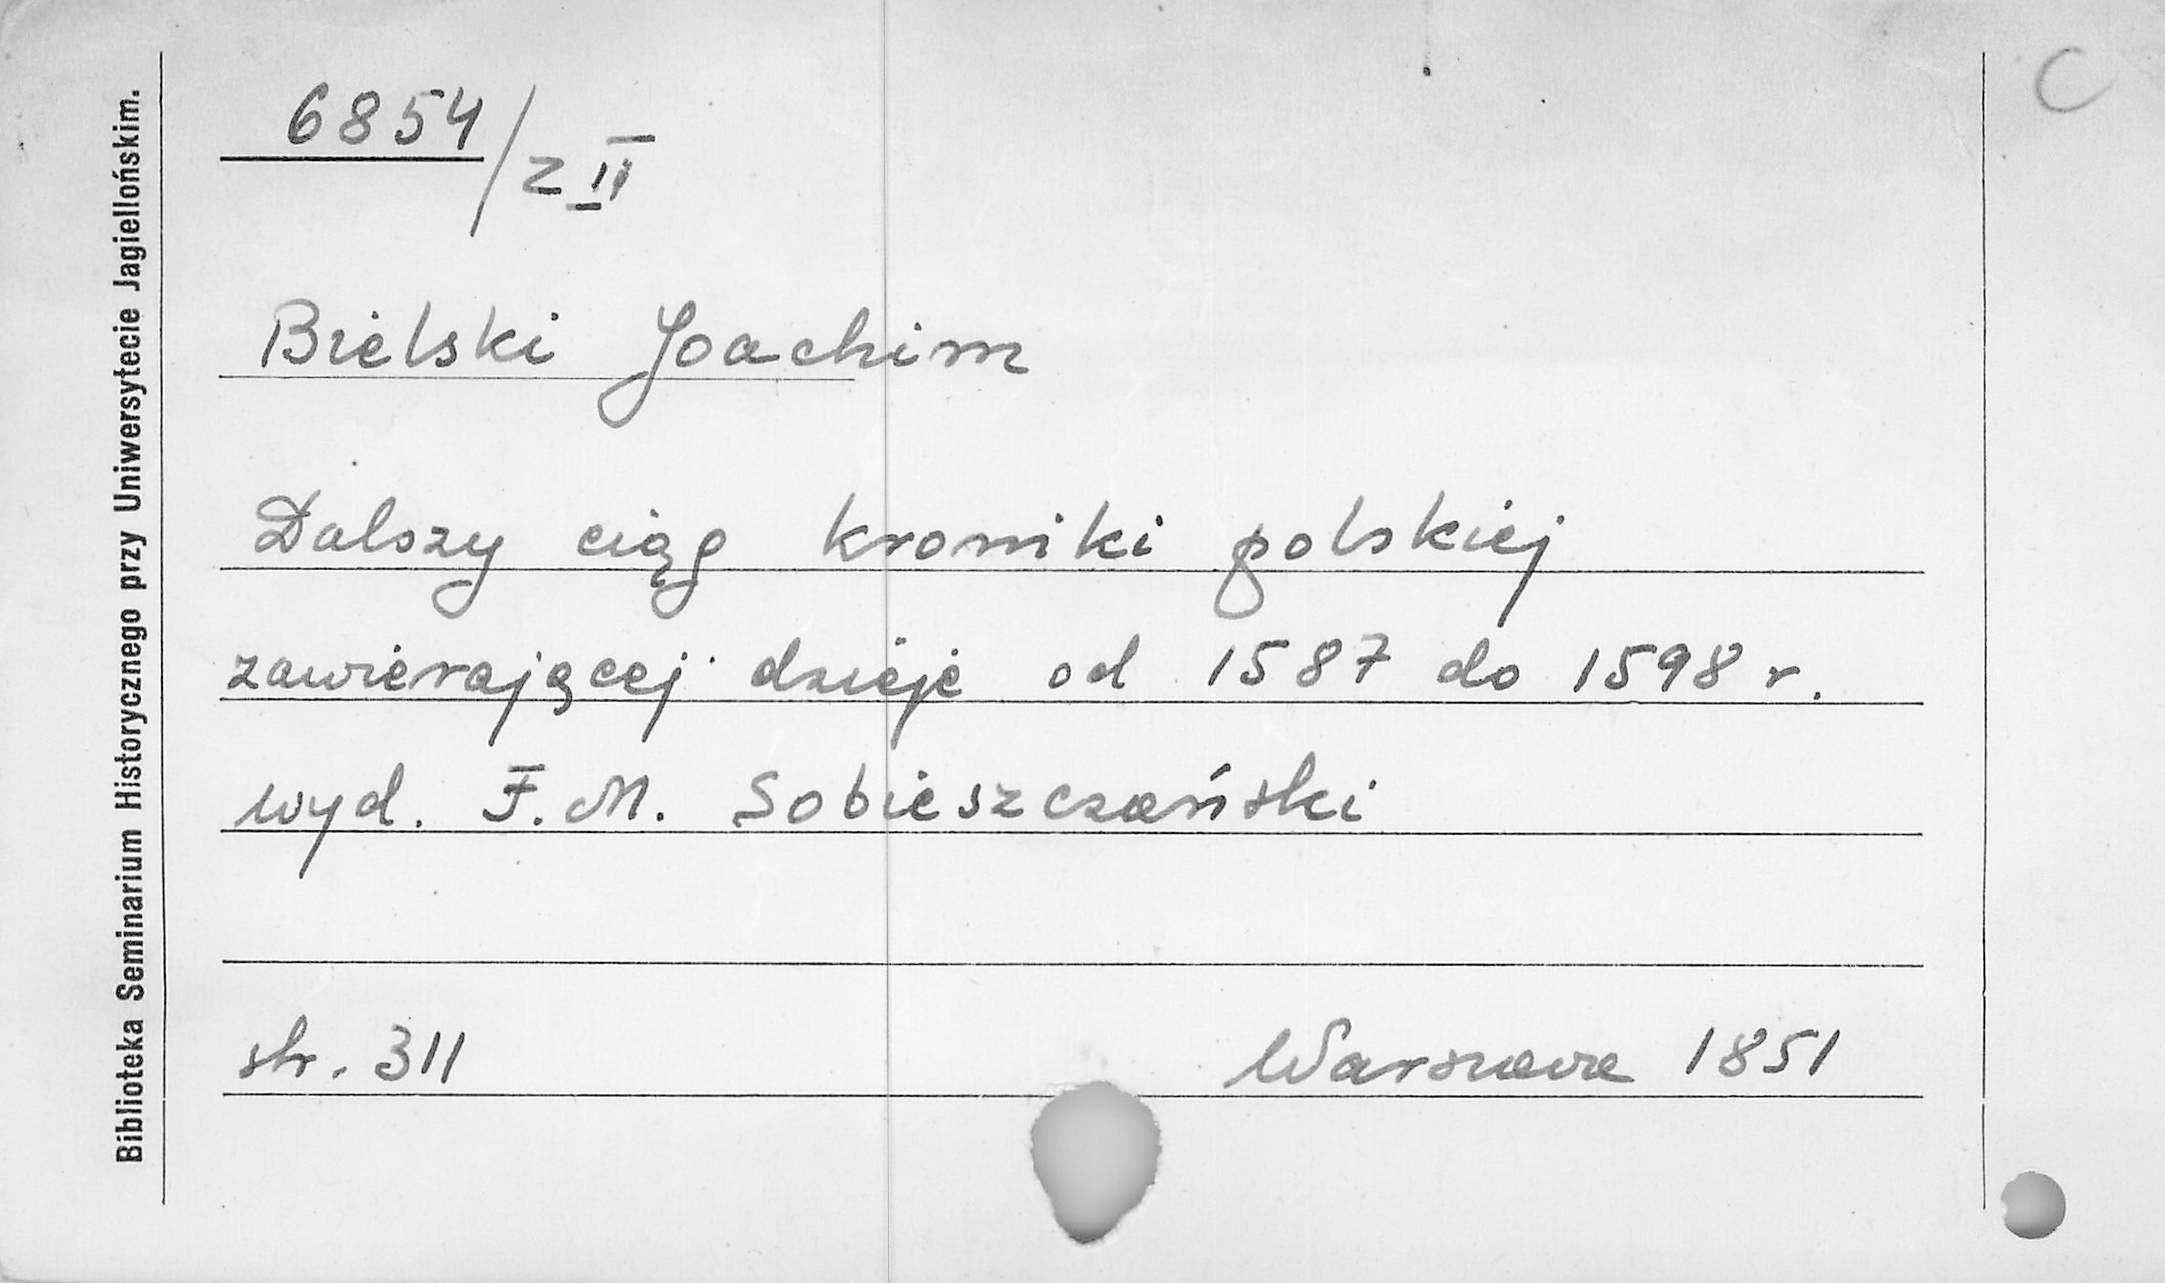 Biblioteka Seminarium Historycznego przy Uniwersytecie Jagiellońskim.
C
6854/Z II
Bielski Joachim
Dalszy ciąg kroniki polskiej
zawierającej dzieje od 1587 do 1598 r.
wyd. F. M. Sobieszczański
str. 311 Warszawa 1851